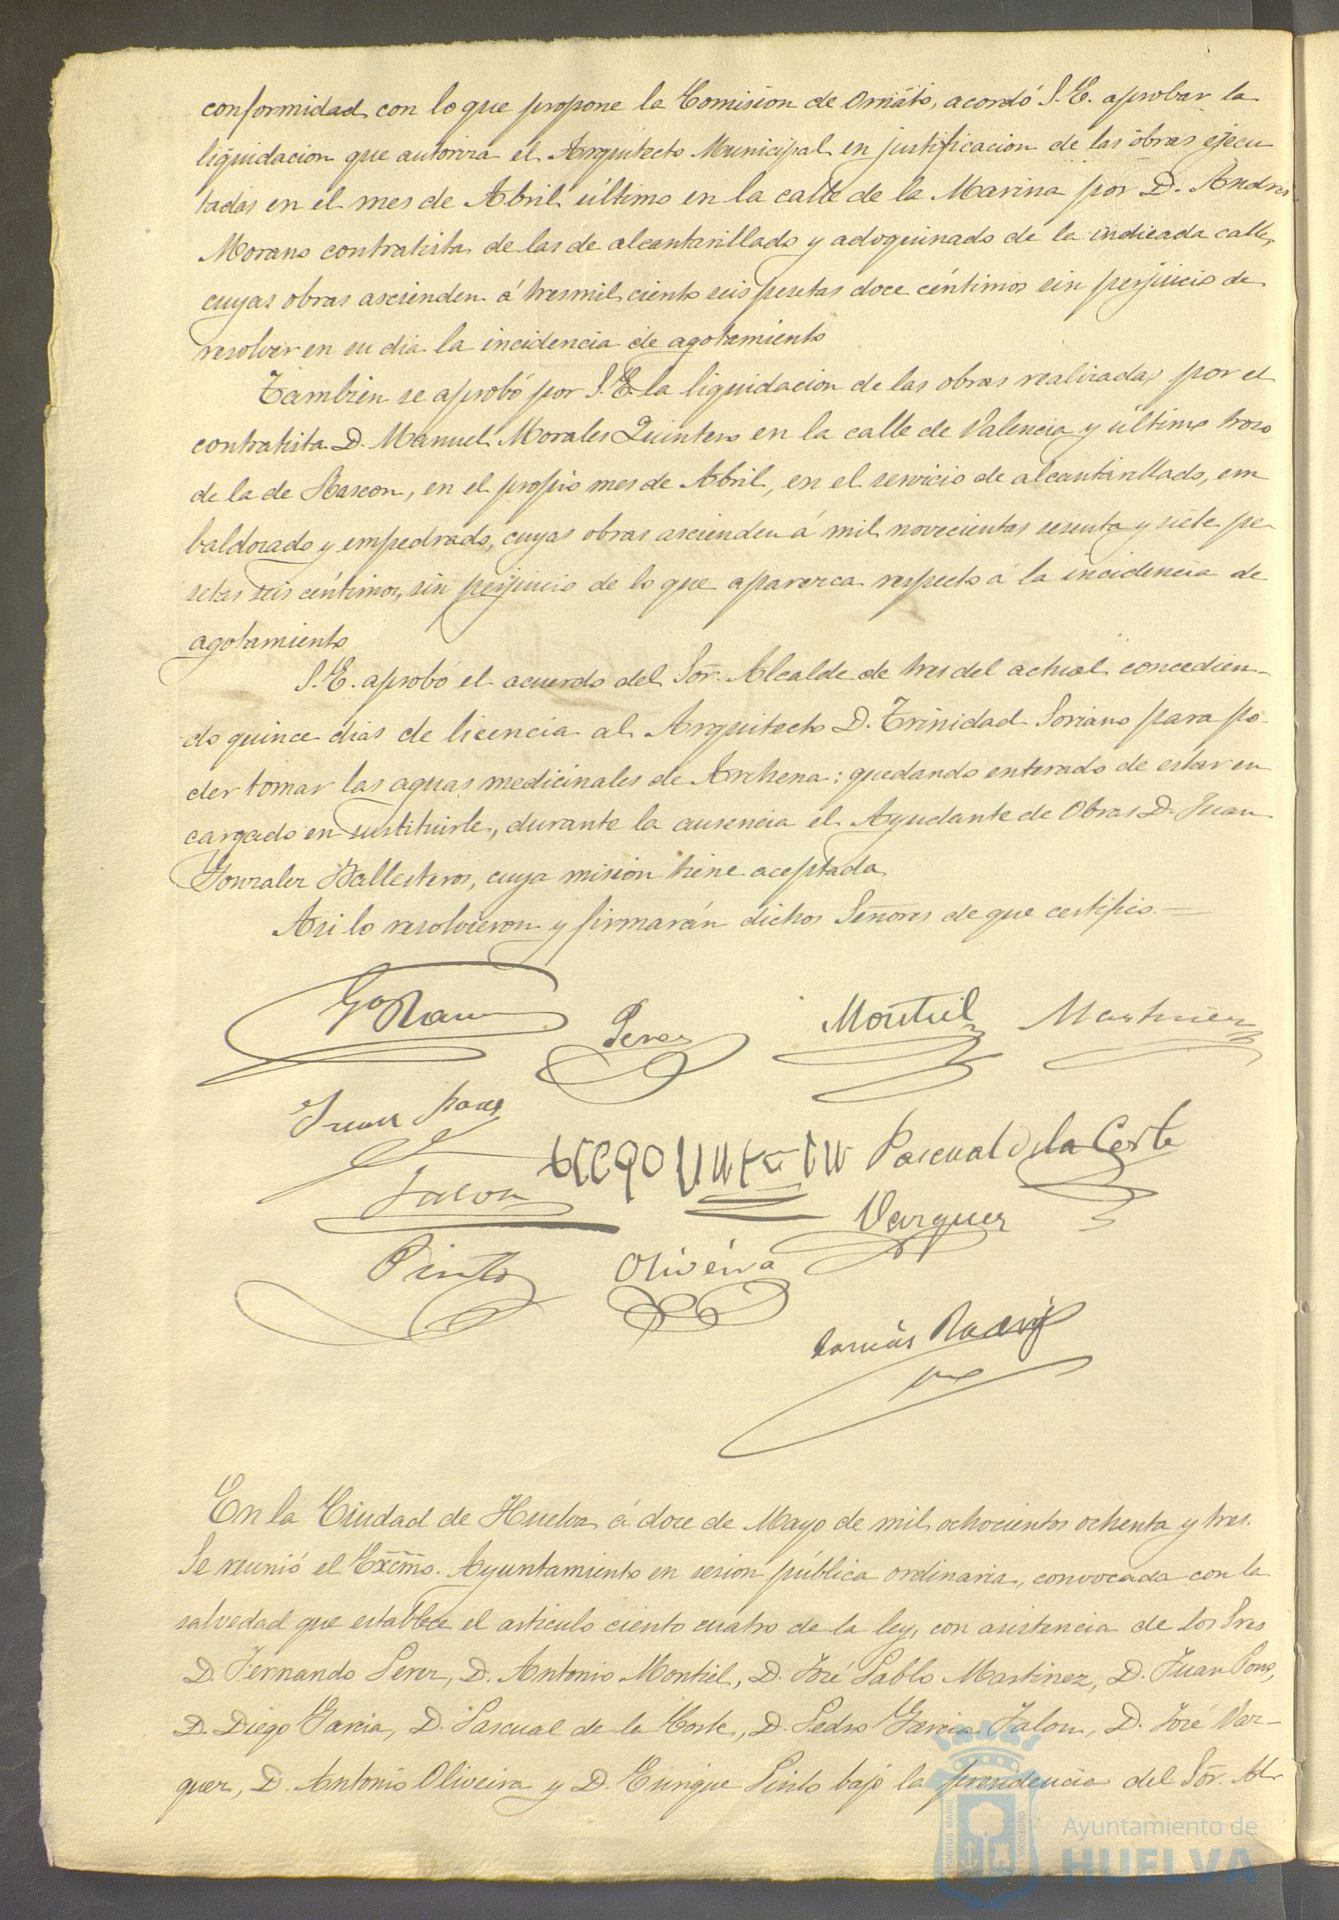 conformidad con lo que propone la Comision de Ornáto, acordó S.E. aprobar la
liquidacion que autoriza el Arquitecto Municipal en justificacion de las obras ejecu
tadas en el mes de Abril último en la calle de la Marina por D. Andres
Morano contratista de las de alcantarillado y adoquinado de la indicada calle,
cuyas obras ascienden á tresmil ciento seis pesetas doce céntimos sin perjuicio de
resolver en su dia la incidencia de agotamiento
Tambien se aprobó por S.E. la liquidacion de las obras realizadas por el
contratista D. Manuel Morales Quintero en la calle de Valencia y último trozo
de la de Rascon, en el propio mes de Abril, en el servicio de alcantarillado, em
baldozado y empedrado, cuyas obras ascienden á mil novecientas sesenta y siete pe-
setas seis céntimos, sin perjuicio de lo que aparezca respecto á la incidencia de
agotamiento
S.E. aprobó el acuerdo del Sor. Alcalde de tres del actual concedien-
do quince dias de licencia al Arquitecto D. Trinidad Soriano para po-
der tomar las aguas medicinales de Archena; quedando enterado de estar en
cargado en sustituirle, durante la ausencia el Ayudante de Obras D. Juan
Gonzalez Ballesteros, cuya mision tiene aceptada
Asi lo resolvieron y firmarán dichos Señores de que certifico.—
Perez Montiel Martinez
Juan Pons
Pascual de la Corte
Jalon
Vazquez
Pinto Oliveira
Tomás
En la Ciudad de Huelva á doce de Mayo de mil ochocientos ochenta y tres.
Se reunió el Excmo. Ayuntamiento en sesion pública ordinaria, convocada con la
salvedad que establece el artículo ciento cuatro de la ley, con asistencia de los Sres
D. Fernando Perez, D. Antonio Montiel, D. José Pablo Martinez, D. Juan Pons,
D. Diego Garcia, D. Pascual de la Corte, D. Pedro Garcia Jalon, D. José Vaz-
quez, D. Antonio Oliveira y D. Enrique Pinto bajo la presidencia del Sor. Al-
Ayuntamiento de
HUELVA